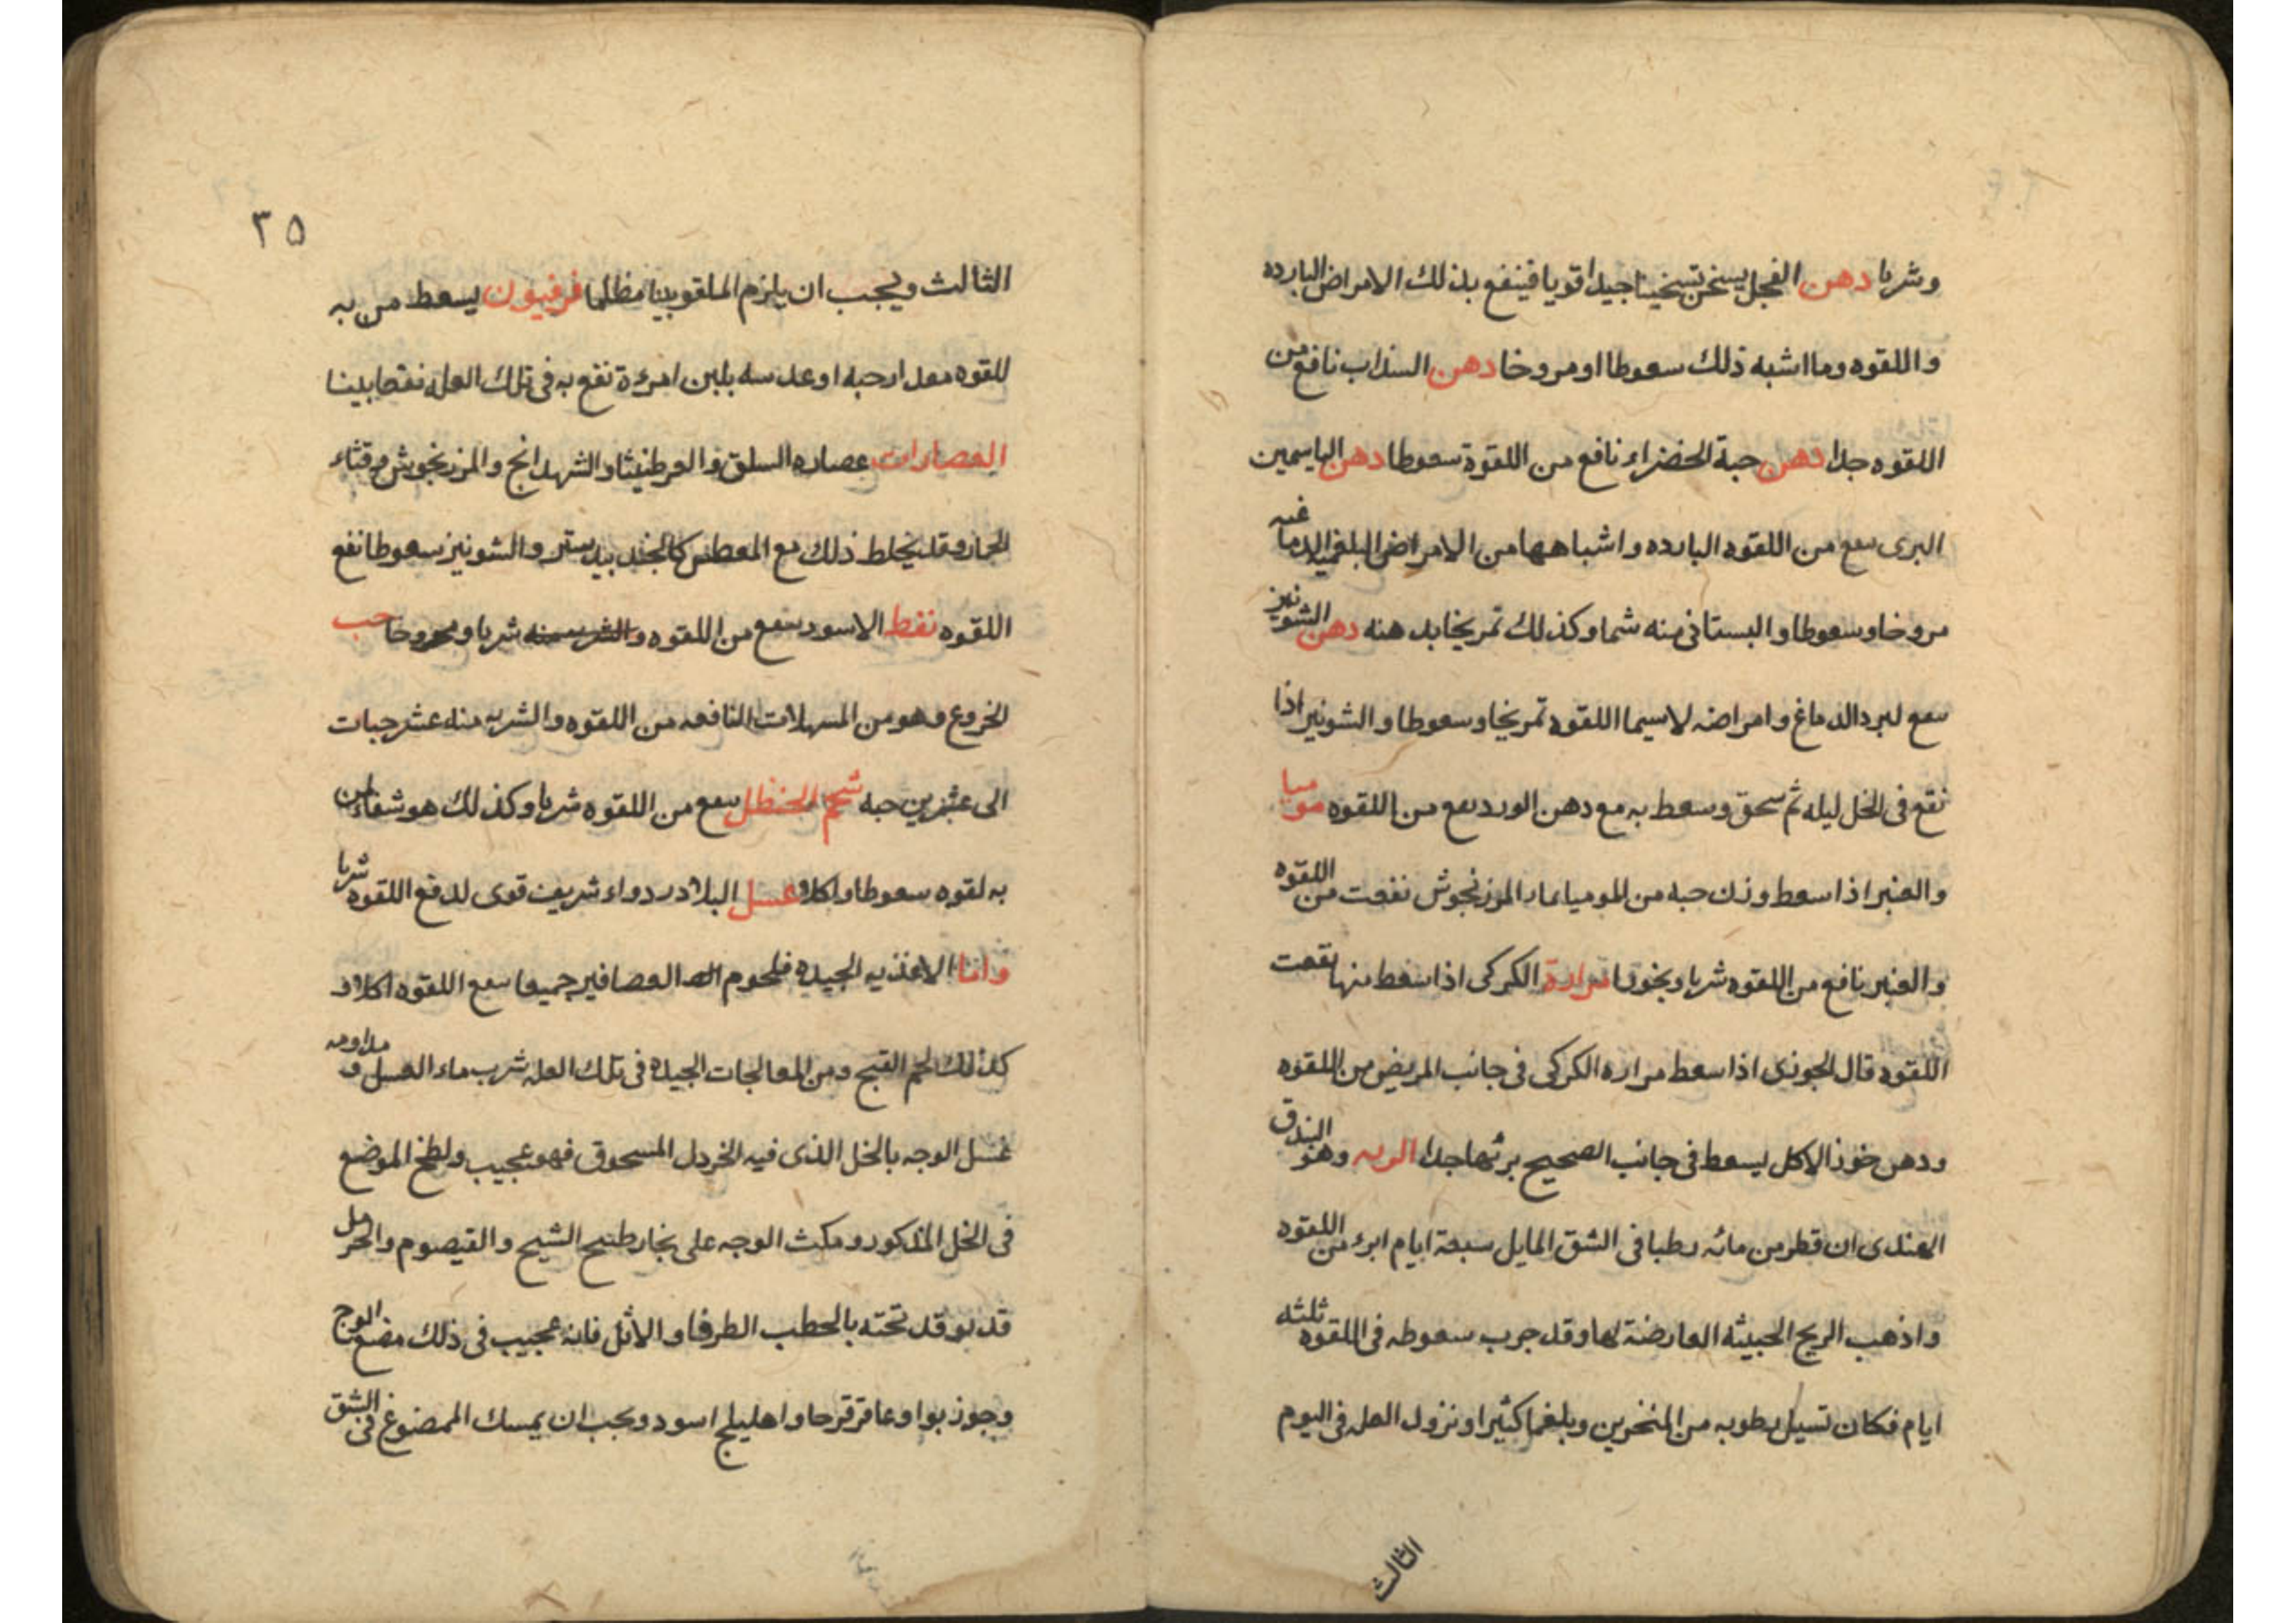 وشربا دهن الفجل يسخن تسخينا جيدا قويا فينفع بذلك الامراض البارده
واللقوه وما اشبه ذلك سعوطا او مروخا دهن السذاب نافع من
اللقوه جدا دهن حبة الخضراء نافع من اللقوة سعوطا دهن الياسمين
البرى ىىفع من اللقوه البارده واشباهها من الامراض البلغميه الدماغيه
مروخا وسعوطا والبستانى منه شما وكذلك تمريخا بدهنه دهن الشونيز
ىىفع لبرد الدماغ وامراضه لاسيما اللقوه تمريخا وسعوطا والشونيز اذا
نقع فى الخل ليله ثم سحق وسعط به مع دهن الورد ىىفع من اللقوه موميا
والعنبر اذا سعط وزن حبه من الموميا بماء المرزنجوش نفعت من اللقوه
والعنبر نافع من اللقوه شربا وبخورا مرارة الكركى اذا سعط منها نفعت
اللقوه قال الجوزى اذا سعط مراره الكركى فى جانب المريض من اللقوه
ودهن خوز الاكل يسعط فى جانب الصحيح برئها جدا الرىه وهو البندق
الهندى ان قطر من مائه رطبا فى الشق المايل سبعة ايام ابرء من اللقوه
واذهب الريح الخبيثه العارضة لها وقد جرب سعوطه فى اللقوه ثلثه
ايام فكان تسيل رطوبه من المنخرين وبلغما كثيرا ونزول العله فى اليوم
الثالث
٣٥
الثالث ويجب ان يلزم الملقو بيتا مظلما فرفيون يسعط من به
للقوه مقدار حبه او عدسه بلبن امرءة نفع به فى تلك العله نفعا بينا
العصارات عصاره السلق والعرطنيثا والشهدانج والمرزنجوش وقثاء
الحمار وقد يخلط ذلك مع المعطس كالجندبيدستر والشونيز سعوطا نفع
اللقوه نفط الاسود ىىفع من اللقوه والشربه منه شربا ومروخا حب
الخروع وهو من المسهلات النافعه من اللقوه والشربه منه عشر حبات
الى عشرين حبه شحم الحنظل ىىفع من اللقوه شربا وكذلك هو شفاء لمن
به لقوه سعوطا واكلا عسل البلادر دواء شريف قوى لدفع اللقوه شربا
واما الاغذيه الجيده فلحوم العصافير جميعا ىىفع اللقوه اكلا و
كذلك لحم القبج ومن المعالجات الجيده فى تلك العله شرب ماء العسل و مداومه
غسل الوجه بالخل الذى فيه الخردل المسحوق فهو عجيب ولطخ الموضع
فى الخل المذكور ومكث الوجه على بخار طبيح الشيح والقيصوم والحرمل
قد يوقد تحته بالحطب الطرفا والاثل فانه عجيب فى ذلك مضغ الوج
وجوز بوا وعاقرقرحا واهليلج اسود ويجب ان يمسك الممضوغ فى الشق